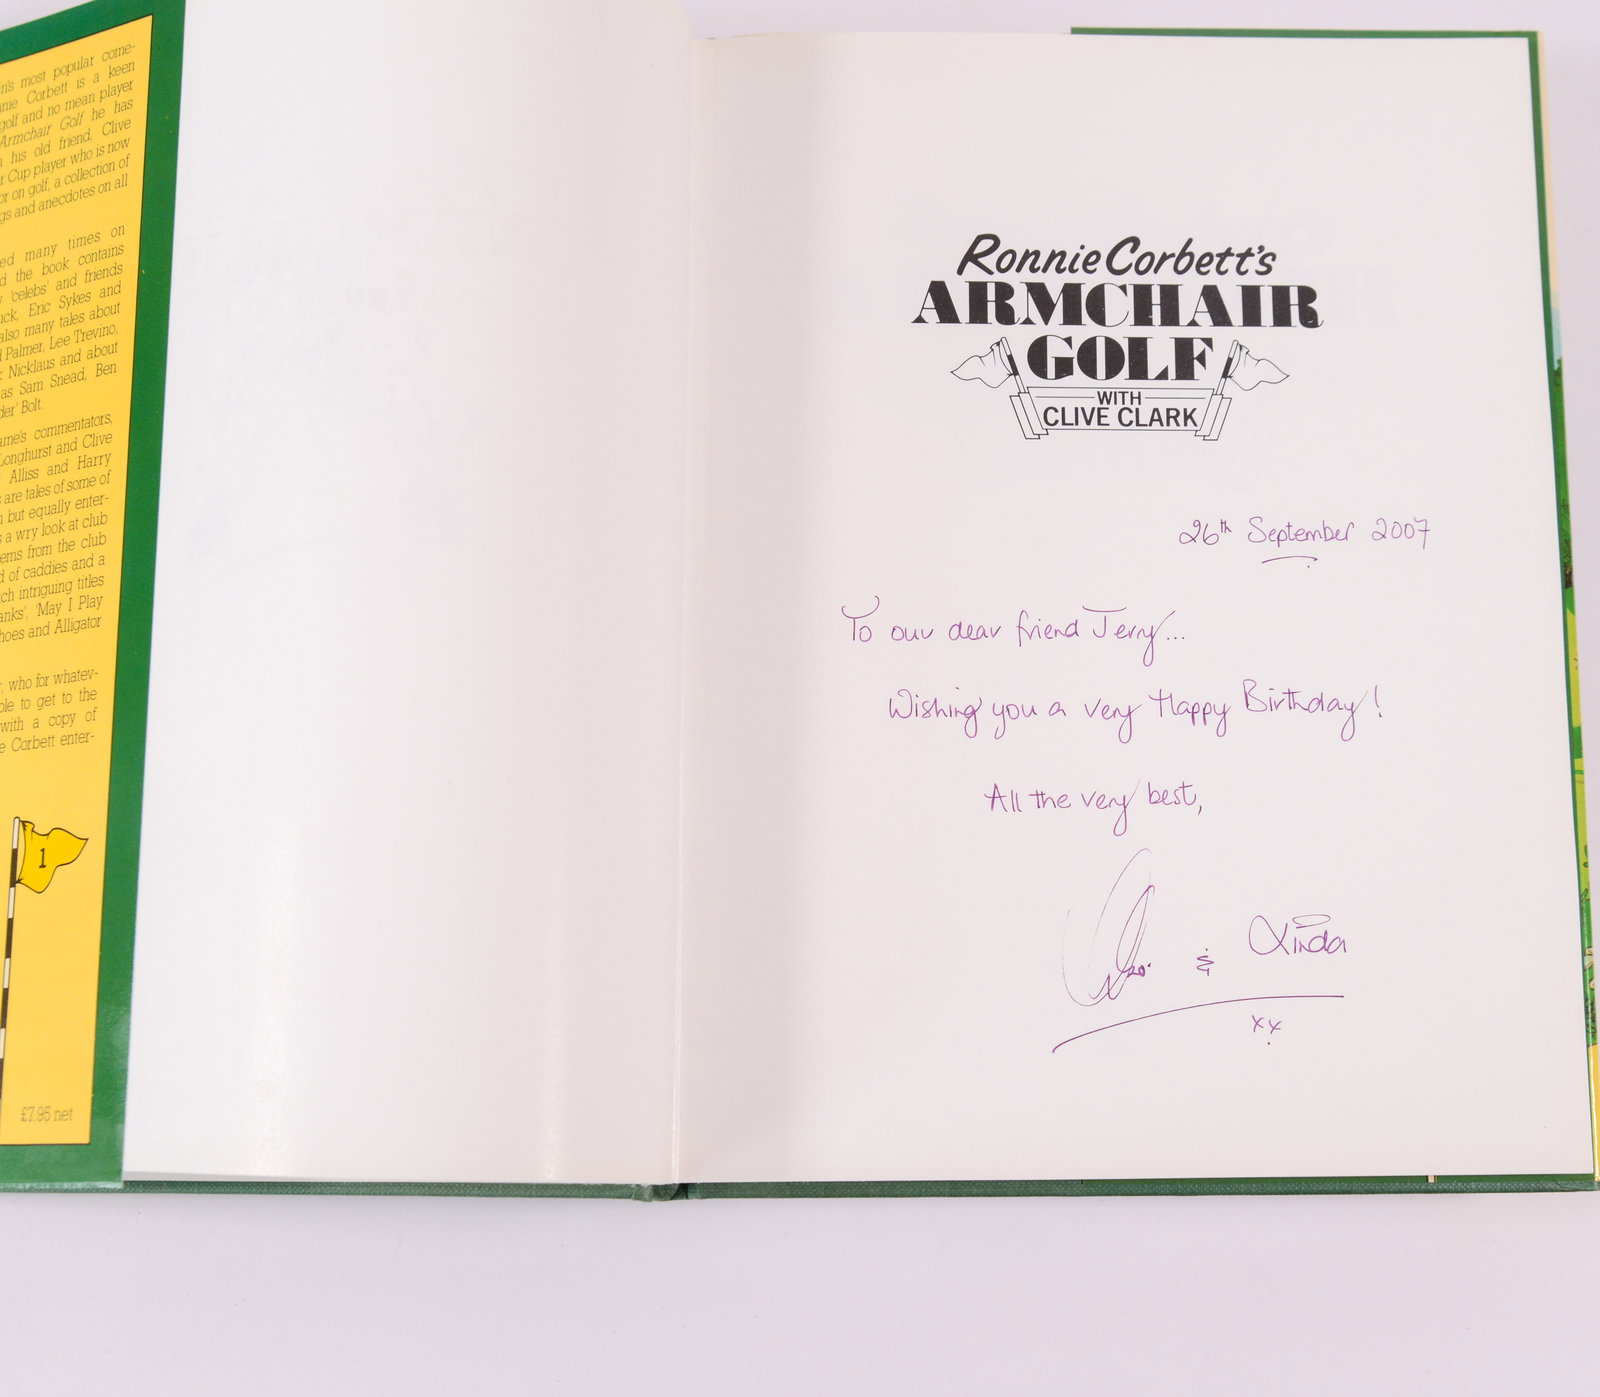 in's most popular come-
nnie Corbett is a keen
golf and no mean player
Armchair Golf he has
h his old friend, Clive
r Cup player who is now
or on golf, a collection of
gs and anecdotes on all
ed many times on
d the book contains
y 'celebs' and friends
uck, Eric Sykes and
also many tales about
d Palmer, Lee Trevino,
k Nicklaus and about
as Sam Snead, Ben
der' Bolt.
ame's commentators,
Longhurst and Clive
r Alliss and Harry
s are tales of some of
n but equally enter-
s a wry look at club
ems from the club
d of caddies and a
ch intriguing titles
anks', 'May I Play
hoes and Alligator
r, who for whatev-
ble to get to the
with a copy of
e Corbett enter-
1
£7.95 net
Ronnie Corbett's
ARMCHAIR
GOLF
WITH
CLIVE CLARK
26th September 2007
To our dear friend Jerry...
Wishing you a very Happy Birthday!
All the very best,
& Linda
xx